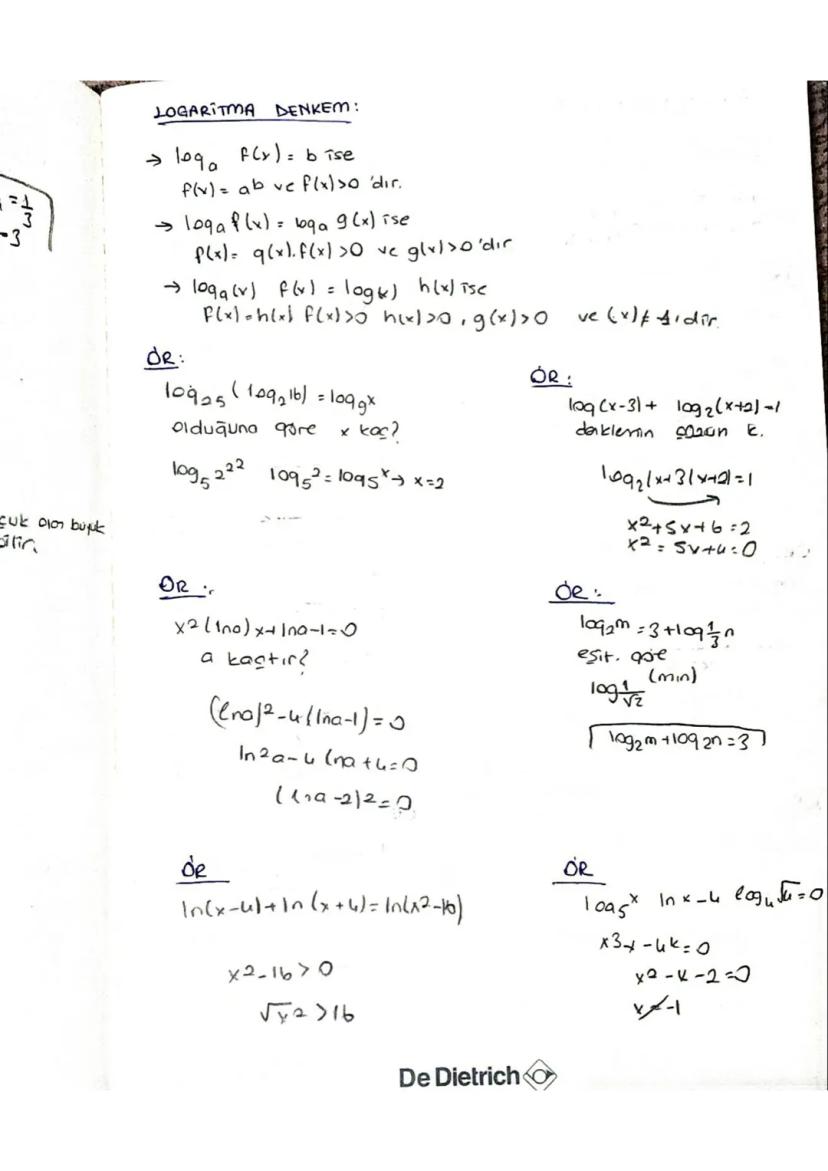 LOGARİTMA DENKEM:
→ logₐ f(x) = b ise
f(x) = ab ve f(x)>0 'dır.
→ logₐ f(x) = logₐ g(x) ise
f(x) = g(x). f(x) >0 ve g(x)>0 'dır
→ logₐ(x) f(x) = log(x) h(x) ise
f(x)=h(x) f(x)>0 h(x)>0, g(x)>0 ve (x)≠1'dir.
= 1/3
-3
çuk olan büyük
ÖR:
log₂₅(log₂16) = log₉x
olduğuna göre x kaç?
log₅2²² log₅² = log₅ˣ → x=2
ÖR:
log(x-3)+ log₂(x+2)=1
denklemin çözün k.
log₂(x+3(x+2)=1
x²+5x+6=2
x² = 5x+4=0
ÖR:
x²(lna)x+lna-1=0
a kaçtır?
(lna)²-4(lna-1)=0
ln²a-4lna+4=0
(lna-2)²=0
ÖR:
log₂m = 3+log 1/3 n
eşit. göre
log 1/√2 (min)
log₂m+log₂n=3
ÖR
ln(x-4)+ln(x+4)=ln(x²-16)
x²-16>0
√x²>16
ÖR
log₅ˣ lnx-4 log₄√4=0
x3-x-4k=0
x²-x-2=0
x≠-1
De Dietrich